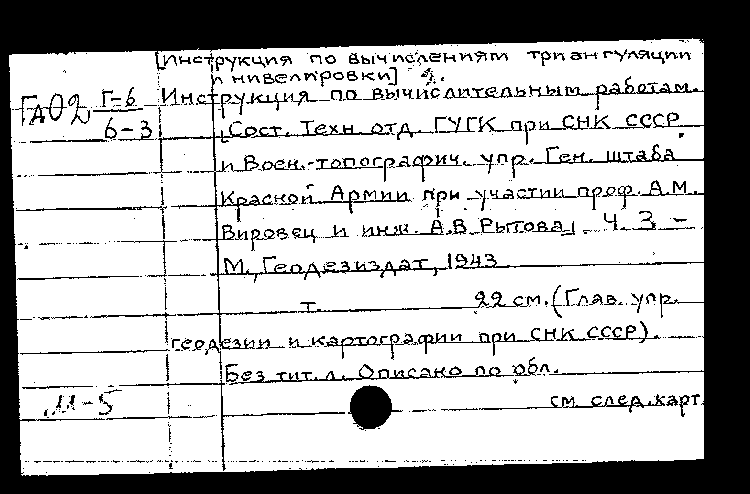 [Инструкция по вычислениям триангуляции
и нивелировки]
ГА02 Г-6/6-3 Инструкция по вычислительным работам.
[Сост. Техн. отд. ГУГК при СНК СССР
и Воен.-топографич. упр. Ген. штаба
Красной Армии при участии проф. А.М.
Вировец и инж. А.В. Рытова]. Ч. 3 –
М., Геодезиздат, 1943
т. 22 см. (Глав. упр.
геодезии и картографии при СНК СССР).
Без тит. л. Описано по обл.
М-5 см. след. карт.